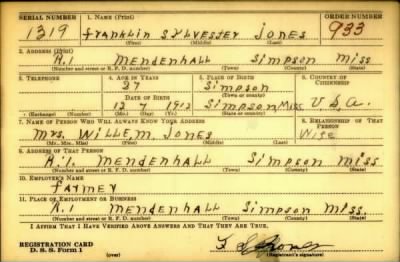 SERIAL NUMBER 1. NAME (Print) ORDER NUMBER
1319 Franklin Sylvester Jones 933
(First) (Middle) (Last)
2. ADDRESS (Print)
R.1 Mendenhall Simpson Miss
(Number and street or R. F. D. number) (Town) (County) (State)
3. TELEPHONE 4. AGE IN YEARS 5. PLACE OF BIRTH 6. COUNTRY OF CITIZENSHIP
Simpson
DATE OF BIRTH
12 7 1912 Simpson Miss U.S.A.
(Exchange) (Number) (Mo.) (Day) (Yr.) (State or country)
7. NAME OF PERSON WHO WILL ALWAYS KNOW YOUR ADDRESS 8. RELATIONSHIP OF THAT PERSON
Mrs. Willie M. Jones Wife
(Mr., Mrs., Miss) (First) (Middle) (Last)
9. ADDRESS OF THAT PERSON
R.1. Mendenhall Simpson Miss
(Number and street or R. F. D. number) (Town) (County) (State)
10. EMPLOYER'S NAME
Farmer
11. PLACE OF EMPLOYMENT OR BUSINESS
R.1 Mendenhall Simpson Miss.
(Number and street or R. F. D. number) (Town) (County) (State)
I AFFIRM THAT I HAVE VERIFIED ABOVE ANSWERS AND THAT THEY ARE TRUE.
REGISTRATION CARD
D. S. S. Form 1 (over) (Registrant's signature)